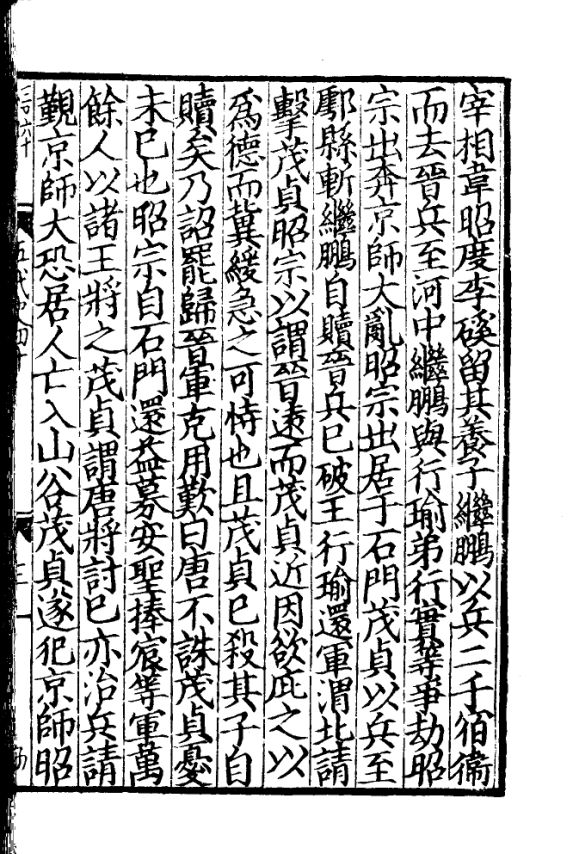 宰相韋昭度李磎留其養子繼鵬以兵二千宿衞
而去晉兵至河中繼鵬與行瑜弟行實等爭劫昭
宗出奔京師大亂昭宗出居于石門茂貞以兵至
鄠縣斬繼鵬自贖晉兵巳破王行瑜還軍渭北請
擊茂貞昭宗以謂晉遠而茂貞近因欲庇之以
爲德而冀緩急之可恃也且茂貞巳殺其子自
贖矣乃詔罷歸晉軍克用歎曰唐不誅茂貞憂
未巳也昭宗自石門還益募安聖捧宸等軍萬
餘人以諸王將之茂貞謂唐將討巳亦治兵請
覲京師大恐居人亡入山谷茂貞遂犯京師昭